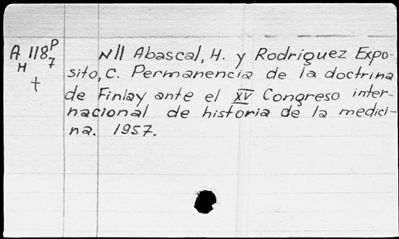 A 118 P/7 N11 Abascal, H. y Rodriguez Expo-
H sito, C. Permanencia de la doctrina
† de Finlay ante el XV Congreso inter-
nacional de historia de la medici-
na. 1957.